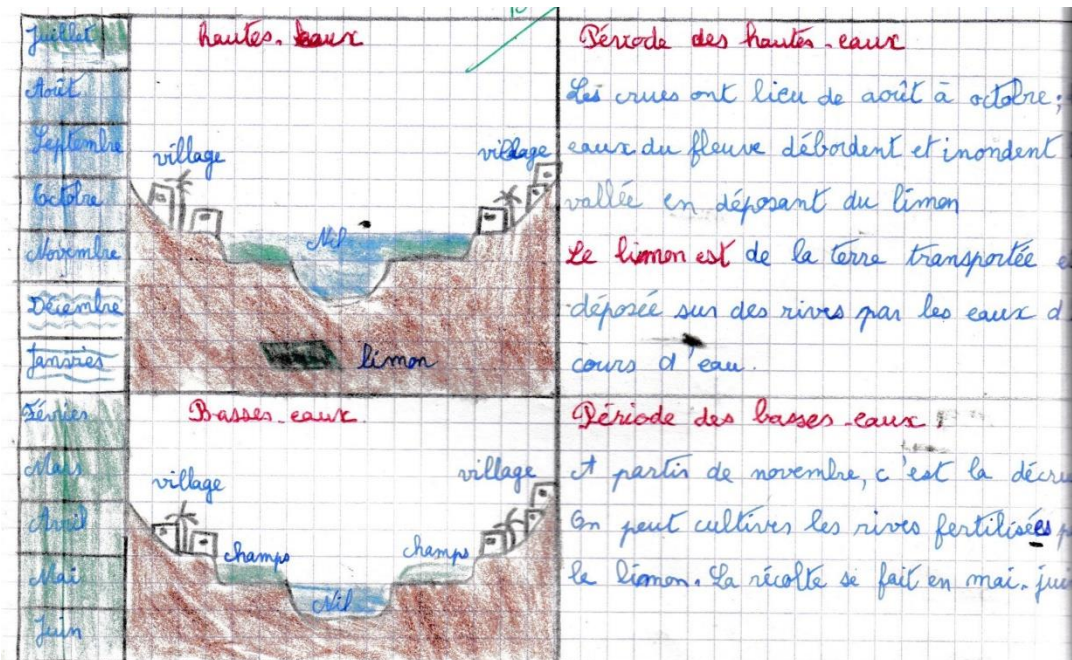 Juillet
Août
Septembre
Octobre
Novembre
Décembre
Janvier
Février
Mars
Avril
Mai
Juin
hautes-eaux
village
village
Nil
limon
Basses-eaux.
village
village
champs
champs
Nil
Période des hautes-eaux
Les crues ont lieu de août à octobre;
eaux du fleuve débordent et inondent
vallée en déposant du limon
Le limon est de la terre transportée
déposée sur des rives par les eaux d
cours d'eau.
Période des basses-eaux
A partir de novembre, c'est la décru
On peut cultiver les rives fertilisées
le limon. La récolte se fait en mai-jui